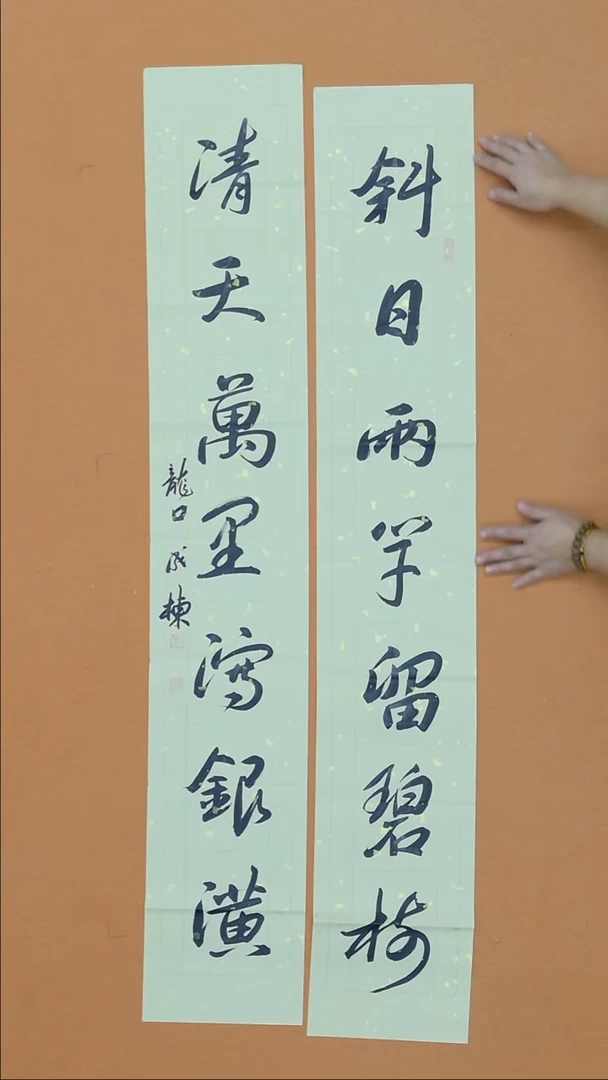 斜日兩竿留碧樹
清天萬里瀉銀潢
龍口成棟